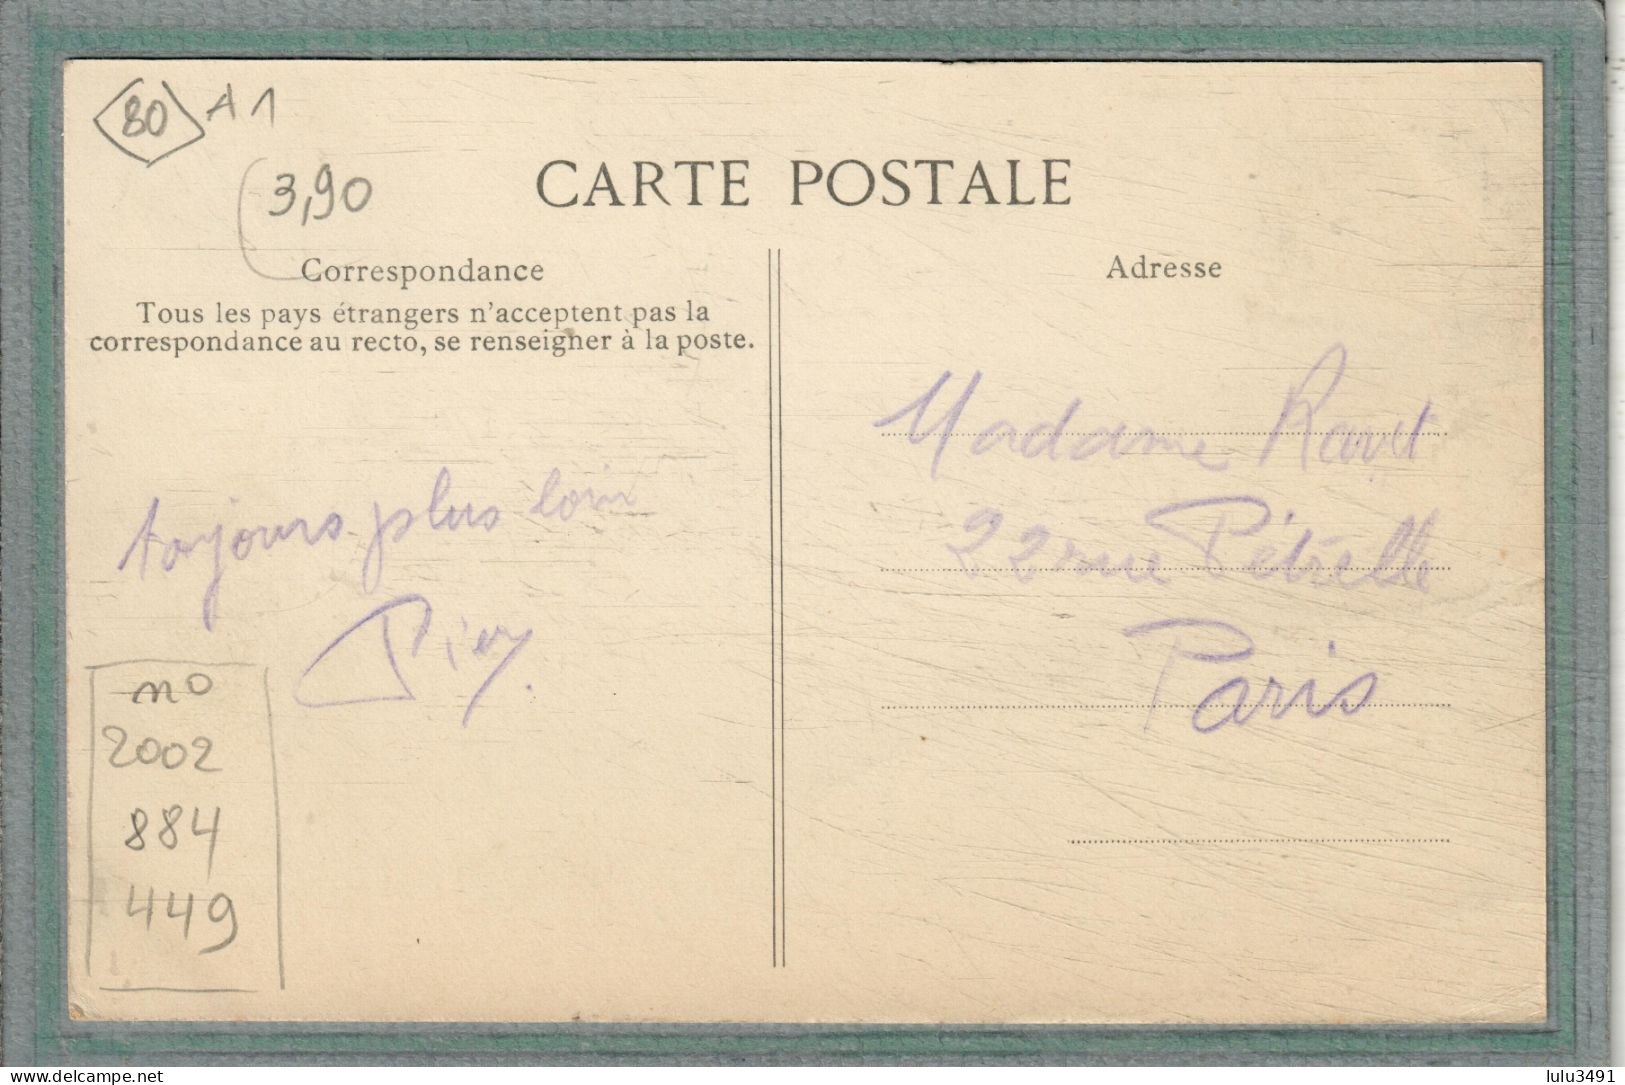 80 A 1
3,90
CARTE POSTALE
Correspondance
Tous les pays étrangers n'acceptent pas la
correspondance au recto, se renseigner à la poste.
toujours plus loin
no
2002
884
449
Adresse
Madame
22 rue Pétrelle
Paris
delcampe.net
lulu3491